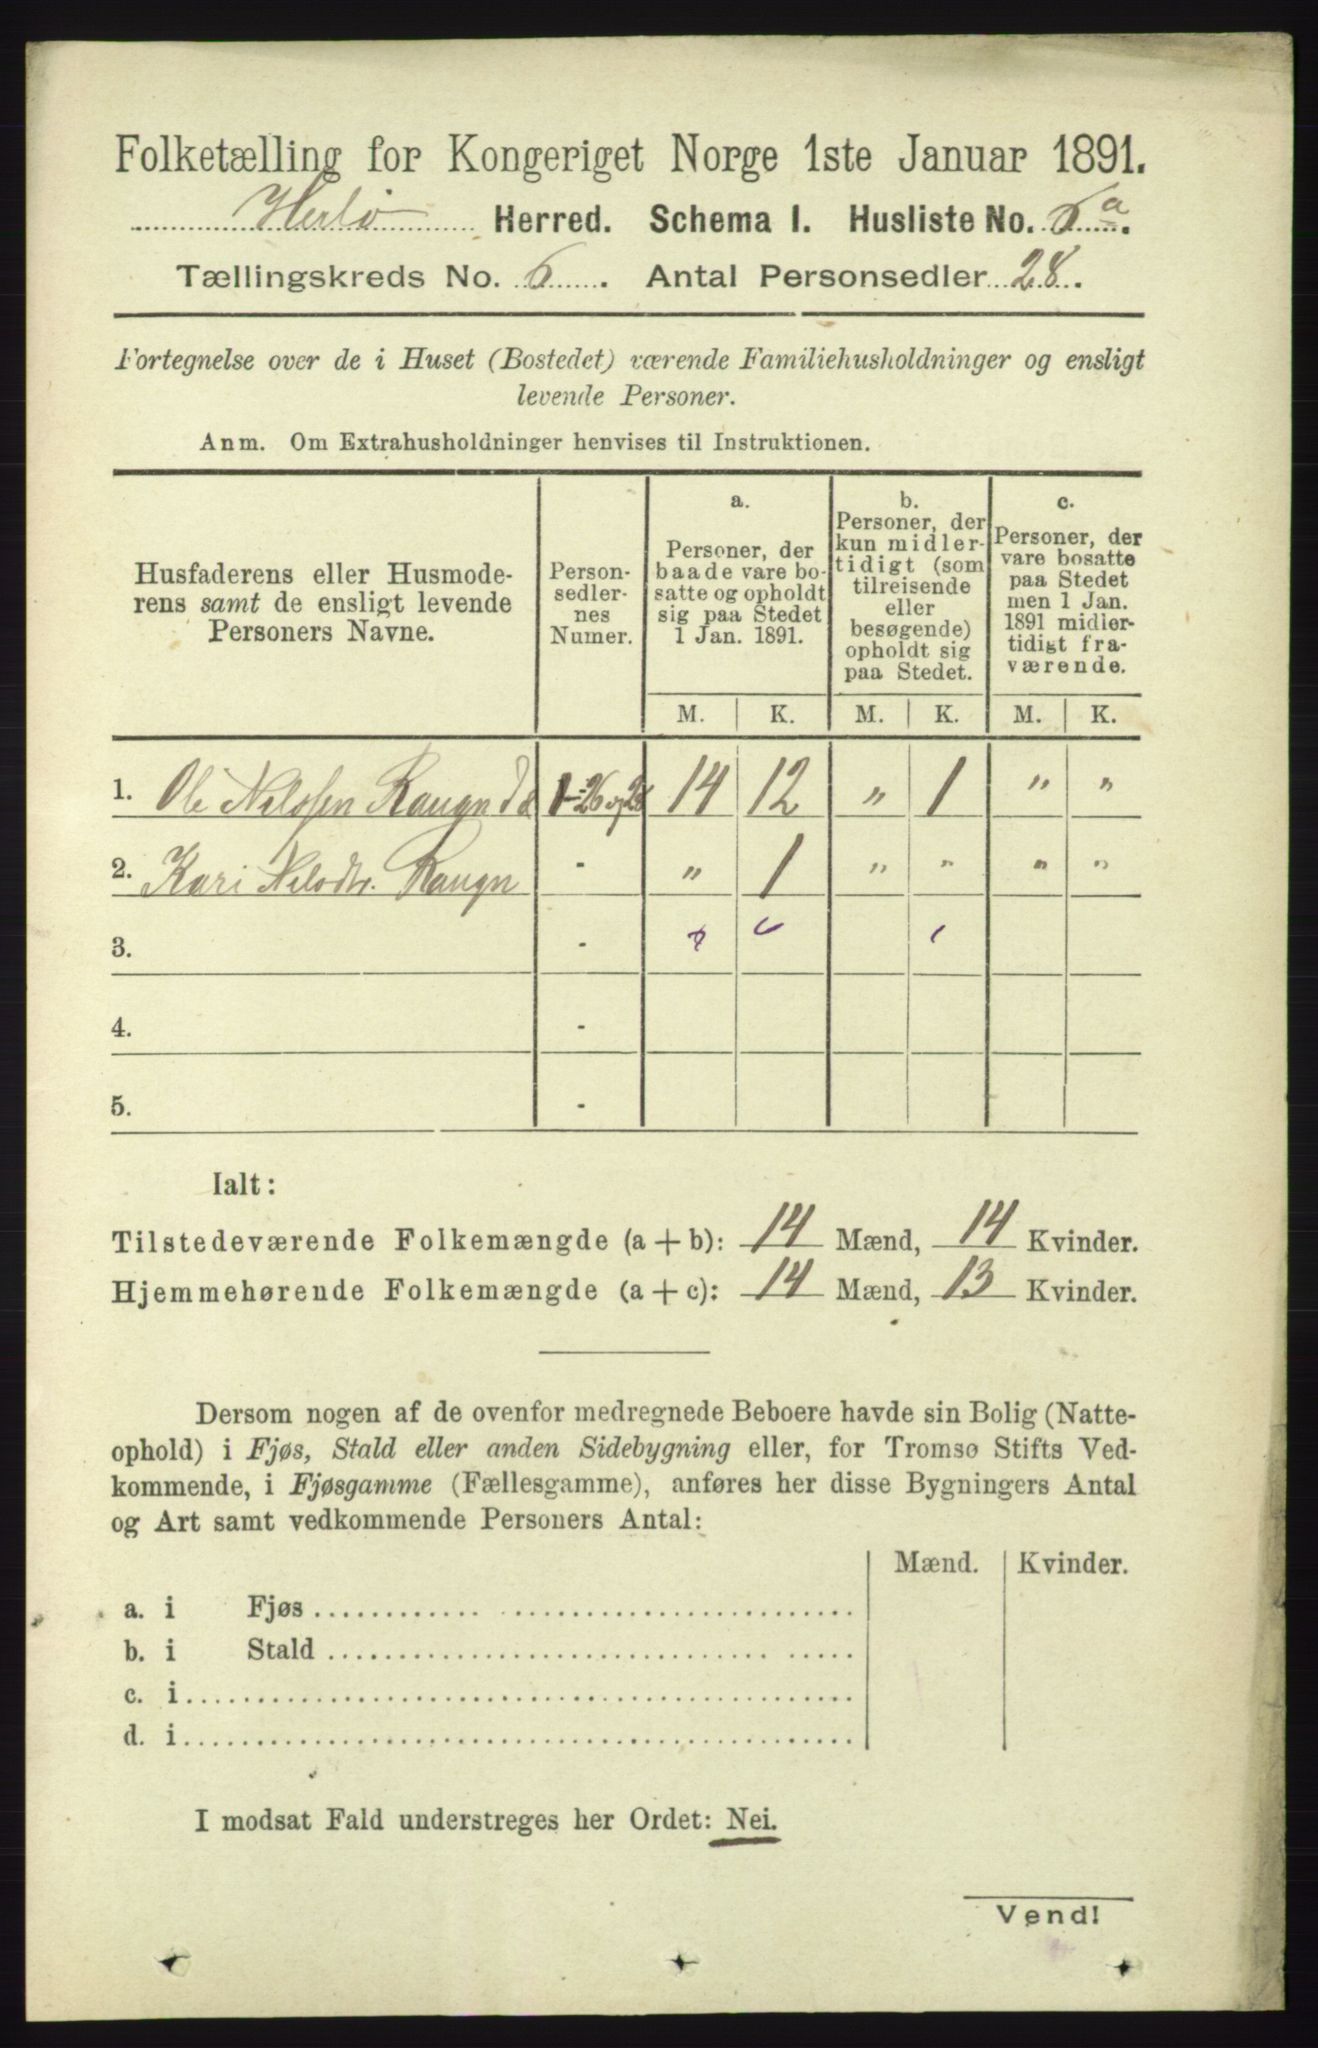 Folketælling for Kongeriget Norge 1ste Januar 1891.
Herlö Herred. Schema I. Husliste No. 6 a.
Tællingskreds No. 6. Antal Personsedler 28.
Fortegnelse over de i Huset (Bostedet) værende Familiehusholdninger og ensligt
levende Personer.
Anm. Om Extrahusholdninger henvises til Instruktionen.
Husfaderens eller Husmode-
rens samt de ensligt levende
Personers Navne.
Person-
sedler-
nes
Numer.
a.
Personer, der
baade vare bo-
satte og opholdt
sig paa Stedet
1 Jan. 1891.
b.
Personer, der
kun midler-
tidigt (som
tilreisende
eller
besøgende)
opholdt sig
paa Stedet.
c.
Personer, der
vare bosatte
paa Stedet
men 1 Jan.
1891 midler-
tidigt fra-
værende.
M. K. M. K. M. K.
1. Ole Nelssen 1-26 og 28 14 12 " 1 " "
2. Kari Nelsdtr. - " 1 " " " "
3. -
4. -
5. -
Ialt:
Tilstedeværende Folkemængde (a + b): 14 Mænd, 14 Kvinder.
Hjemmehørende Folkemængde (a + c): 14 Mænd, 13 Kvinder.
Dersom nogen af de ovenfor medregnede Beboere havde sin Bolig (Natte-
ophold) i Fjøs, Stald eller anden Sidebygning eller, for Tromsø Stifts Ved-
kommende, i Fjøsgamme (Fællesgamme), anføres her disse Bygningers Antal
og Art samt vedkommende Personers Antal:
Mænd. Kvinder.
a. i Fjøs
b. i Stald
c. i
d. i
I modsat Fald understreges her Ordet: Nei.
Vend!